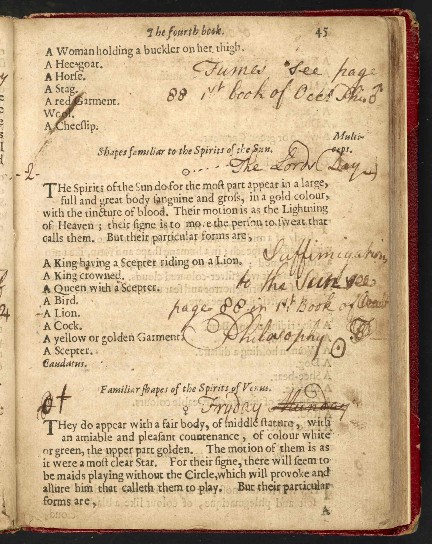 The fourth book. 45
A Woman holding a buckler on her thigh.
A Hee-goat.
A Horse. Fumes see page
A Stag.
A red Garment. 88 1st book of Occt Phi
Wool.
A Cheeslip.
Multi-
Shapes familiar to the Spirits of the Sun. ceps.
-2- The Lords Day
THe Spirits of the Sun do for the most part appear in a large,
full and great body sanguine and gross, in a gold colour,
with the tincture of blood. Their motion is as the Lightning
of Heaven; their signe is to move the person to sweat that
calls them. But their particular forms are,
Suffimigation
A King having a Scepter riding on a Lion.
A King crowned. to the Sun see
A Queen with a Scepter.
A Bird. page 88 in 1st Book of Occult
A Lion.
A Cock.
A yellow or golden Garment. Philosophy
A Scepter.
Caudatus.
Familiar shapes of the Spirits of Venus.
♀ Fryday Munday
THey do appear with a fair body, of middle stature, with
an amiable and pleasant countenance, of colour white
or green, the upper part golden. The motion of them is as
it were a most clear Star. For their signe, there will seem to
be maids playing without the Circle, which will provoke and
allure him that calleth them to play. But their particular
forms are,
A